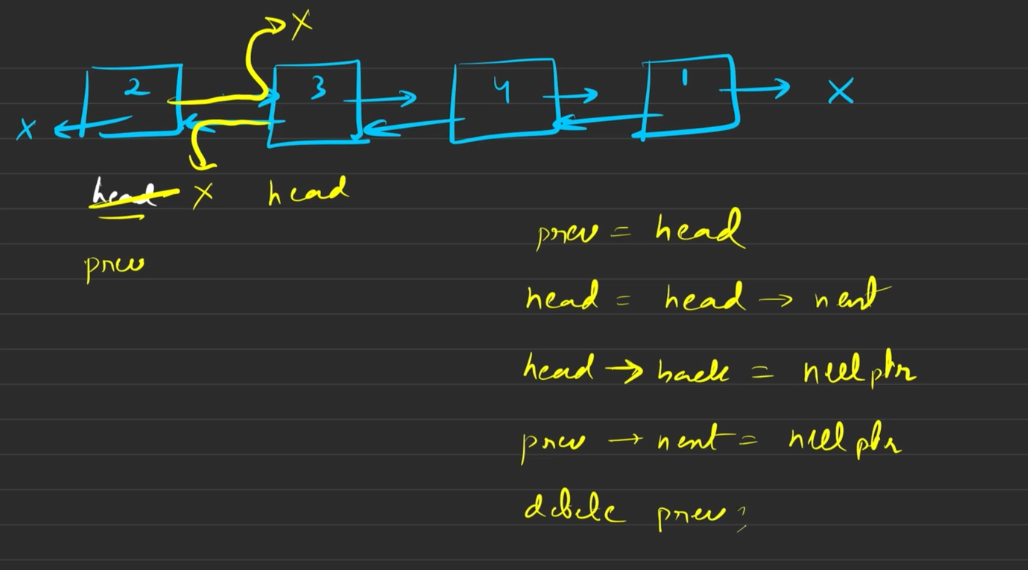 X
2 3 4 1 X
X
head X head
prev
prev = head
head = head → next
head → back = nullptr
prev → next = nullptr
delete prev;